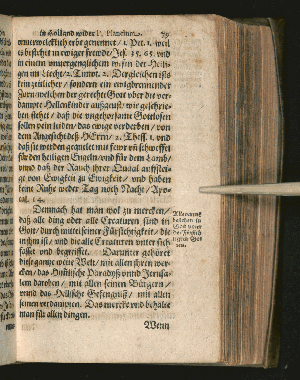 in Holland wider P. Plancium. 79
unverwelcklich erbe genennet / 1. Pet. 1. weil
es bestehet in ewiger frewde / Jes. 35. 65. und
in einem unvergenglichem wesen der Heili-
gen im Liecht / 2. Timot. 2. Dergleichen ists
kein zeitlicher / sondern ein ewigbrennender
Zorn welchen der gerechte Gott vor die ver-
dampte Hellenkinder außgeust / wie geschrie-
ben stehet / daß die ungehorsame Gottlosen
sollen pein leiden / das ewige verderben / von
dem Angesicht deß HErrn / 2. Thess. 1. und
daß sie werden gequelet mit fewr uñ schweffel
für den heiligen Engeln / und für dem Lamb /
und daß der Rauch ihrer Qual auffstei-
ge von Ewigkeit zu Ewigkeit / und haben
keine Ruhe weder Tag noch Nacht / Apo-
cal. 14.
Demnach hat man wol zu mercken /
daß alle ding oder alle Creaturen sind in
Gott / durch mittel seiner Fürsichtigkeit / die
in ihm ist / und die alle Creaturen unter sich
fasset und begreiffet. Darunter gehöret
diese gantze weite Welt / mit allen ihren wer-
cken / das Himlische Paradyß unnd Jerusa-
lem daroben / mit allen seinen Bürgern /
unnd das Hellische Gefengnuß / mit allen
seinen verdampten. Das mercke und behalte
man für allen dingen.
Wenn
Alle creatu-
bestehen in
Gott